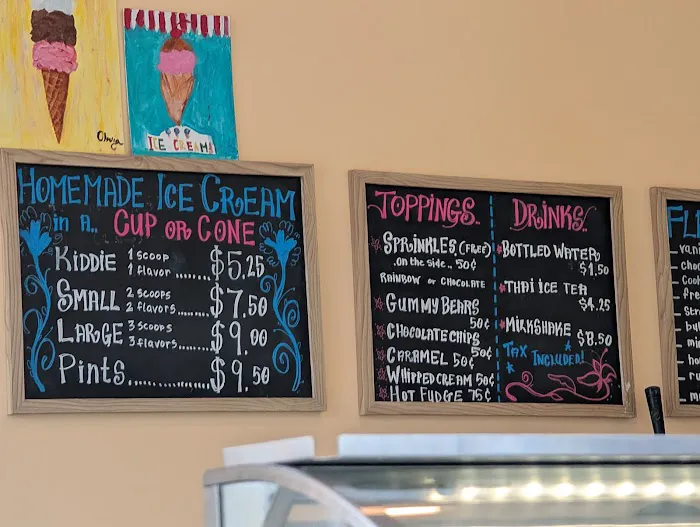 Olwya
ICE CREAM
HOMEMADE ICE CREAM
in a.. CUP OR CONE
KIDDIE 1 scoop 1 flavor ........ $5.25
SMALL 2 scoops 2 flavors ....... $7.50
LARGE 3 scoops 3 flavors ...... $9.00
Pints .............. $9.50
TOPPINGS..
SPRINKLES (FREE)
..on the side.. 50¢
RAINBOW or CHOCOLATE
GUMMY BEARS
50¢
CHOCOLATE CHIPS
50¢
CARAMEL 50¢
WHIPPED CREAM 50¢
HOT FUDGE 75¢
DRINKS..
BOTTLED WATER
$1.50
THAI ICE TEA
$4.25
MILKSHAKE
$8.50
TAX INCLUDED!
FL